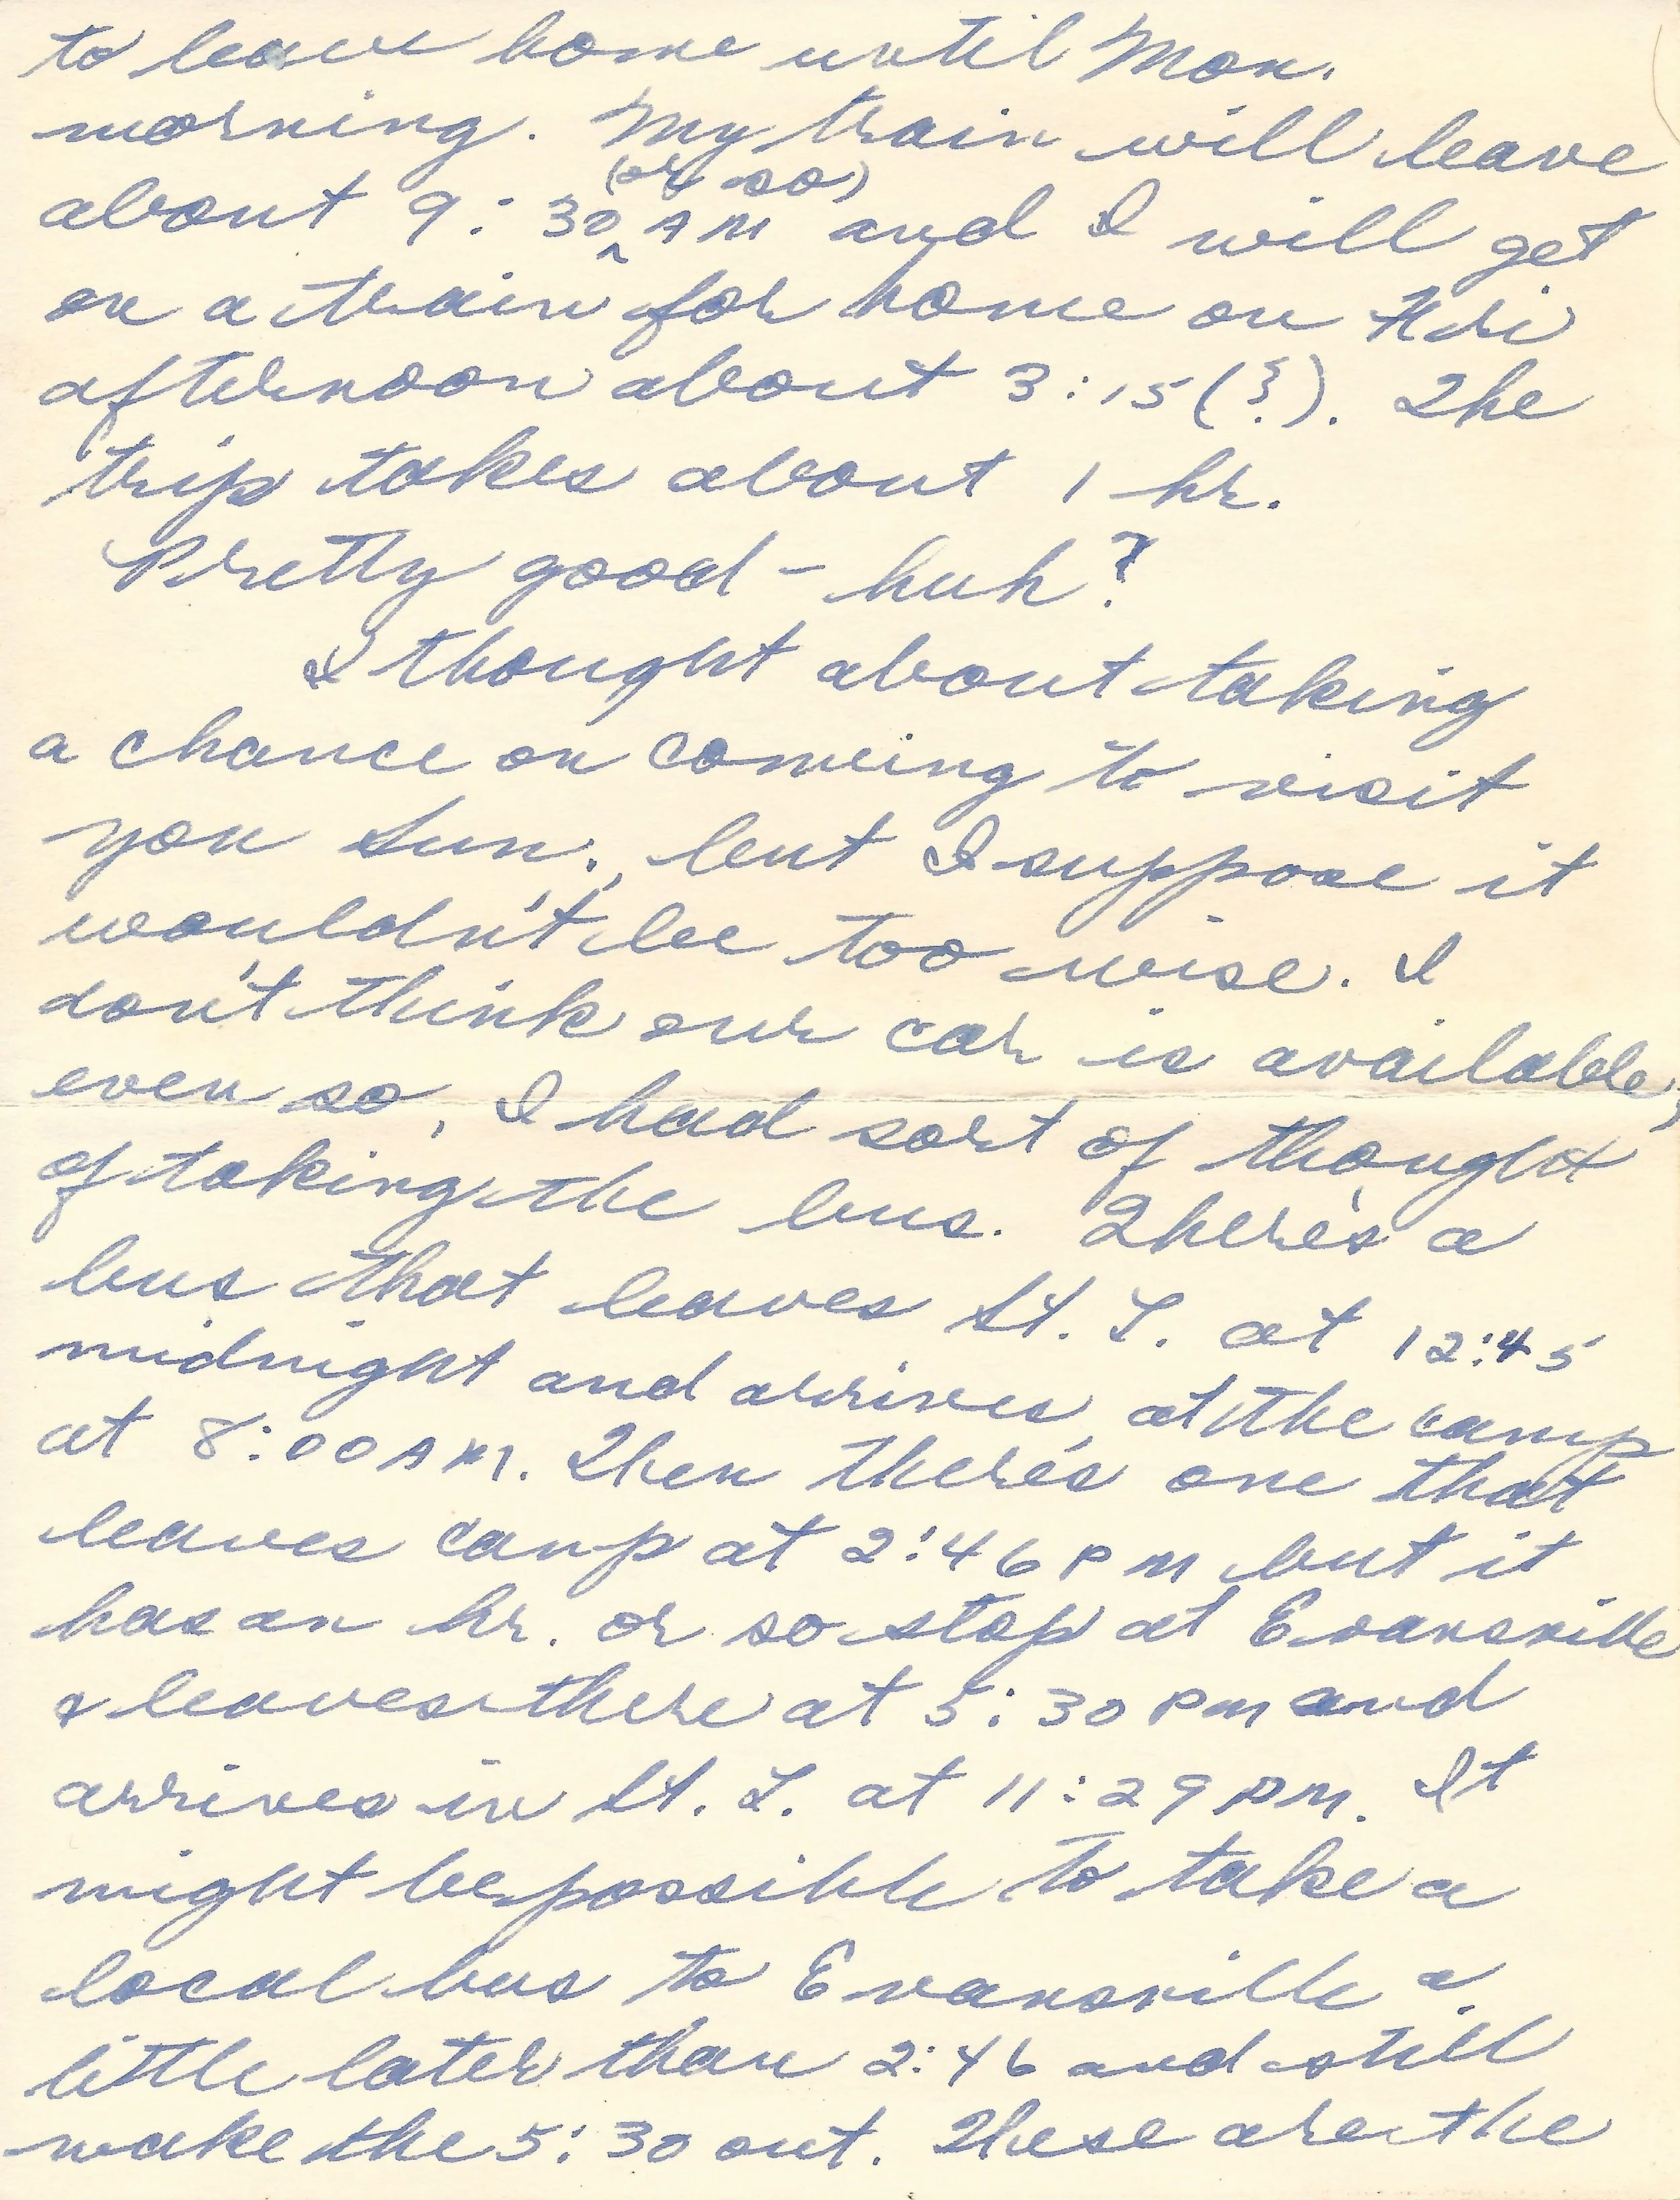 to leave home until Mon.
morning. My train will leave
about 9:30 (or so) AM and I will get
on a train for home on Fri
afternoon about 3:15 (?). The
trip takes about 1 hr.
Pretty good - huh?
I thought about taking
a chance on coming to visit
you Sun., but I suppose it
wouldn't be too wise. I
don't think our car is available;
even so, I had sort of thought
of taking the bus. There's a
bus that leaves St. L. at 12:45
midnight and arrives at the camp
at 8:00 AM. Then there's one that
leaves camp at 2:46 PM but it
has an hr. or so stop at Evansville
& leaves there at 5:30 PM and
arrives in St. L. at 11:29 PM. It
might be possible to take a
local bus to Evansville a
little later than 2:46 and still
make the 5:30 out. These are the